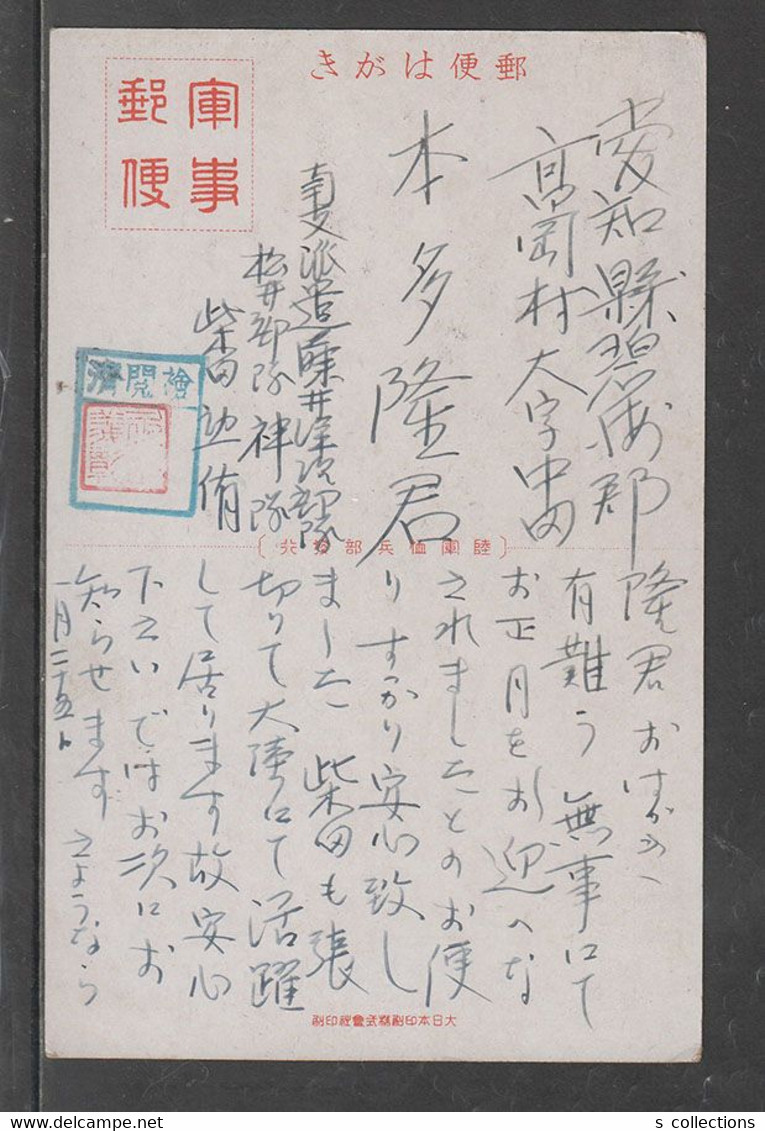 郵便はがき
軍事
郵便
愛知縣碧海郡
高岡村大字中田
本多隆君
南支派遣藤井洋次部隊
松井部隊神隊
柴田
検閲済
陸軍恤兵部發行
隆君おはがき
有難う無事にて
お正月をお迎へな
されましたとのお便
りすっかり安心致し
ました柴田も張
切りて大陸にて活躍
して居ります故安心
下さいではお次にお
知らせます さようなら
一月二十五日
大日本印刷株式會社印刷
s collections